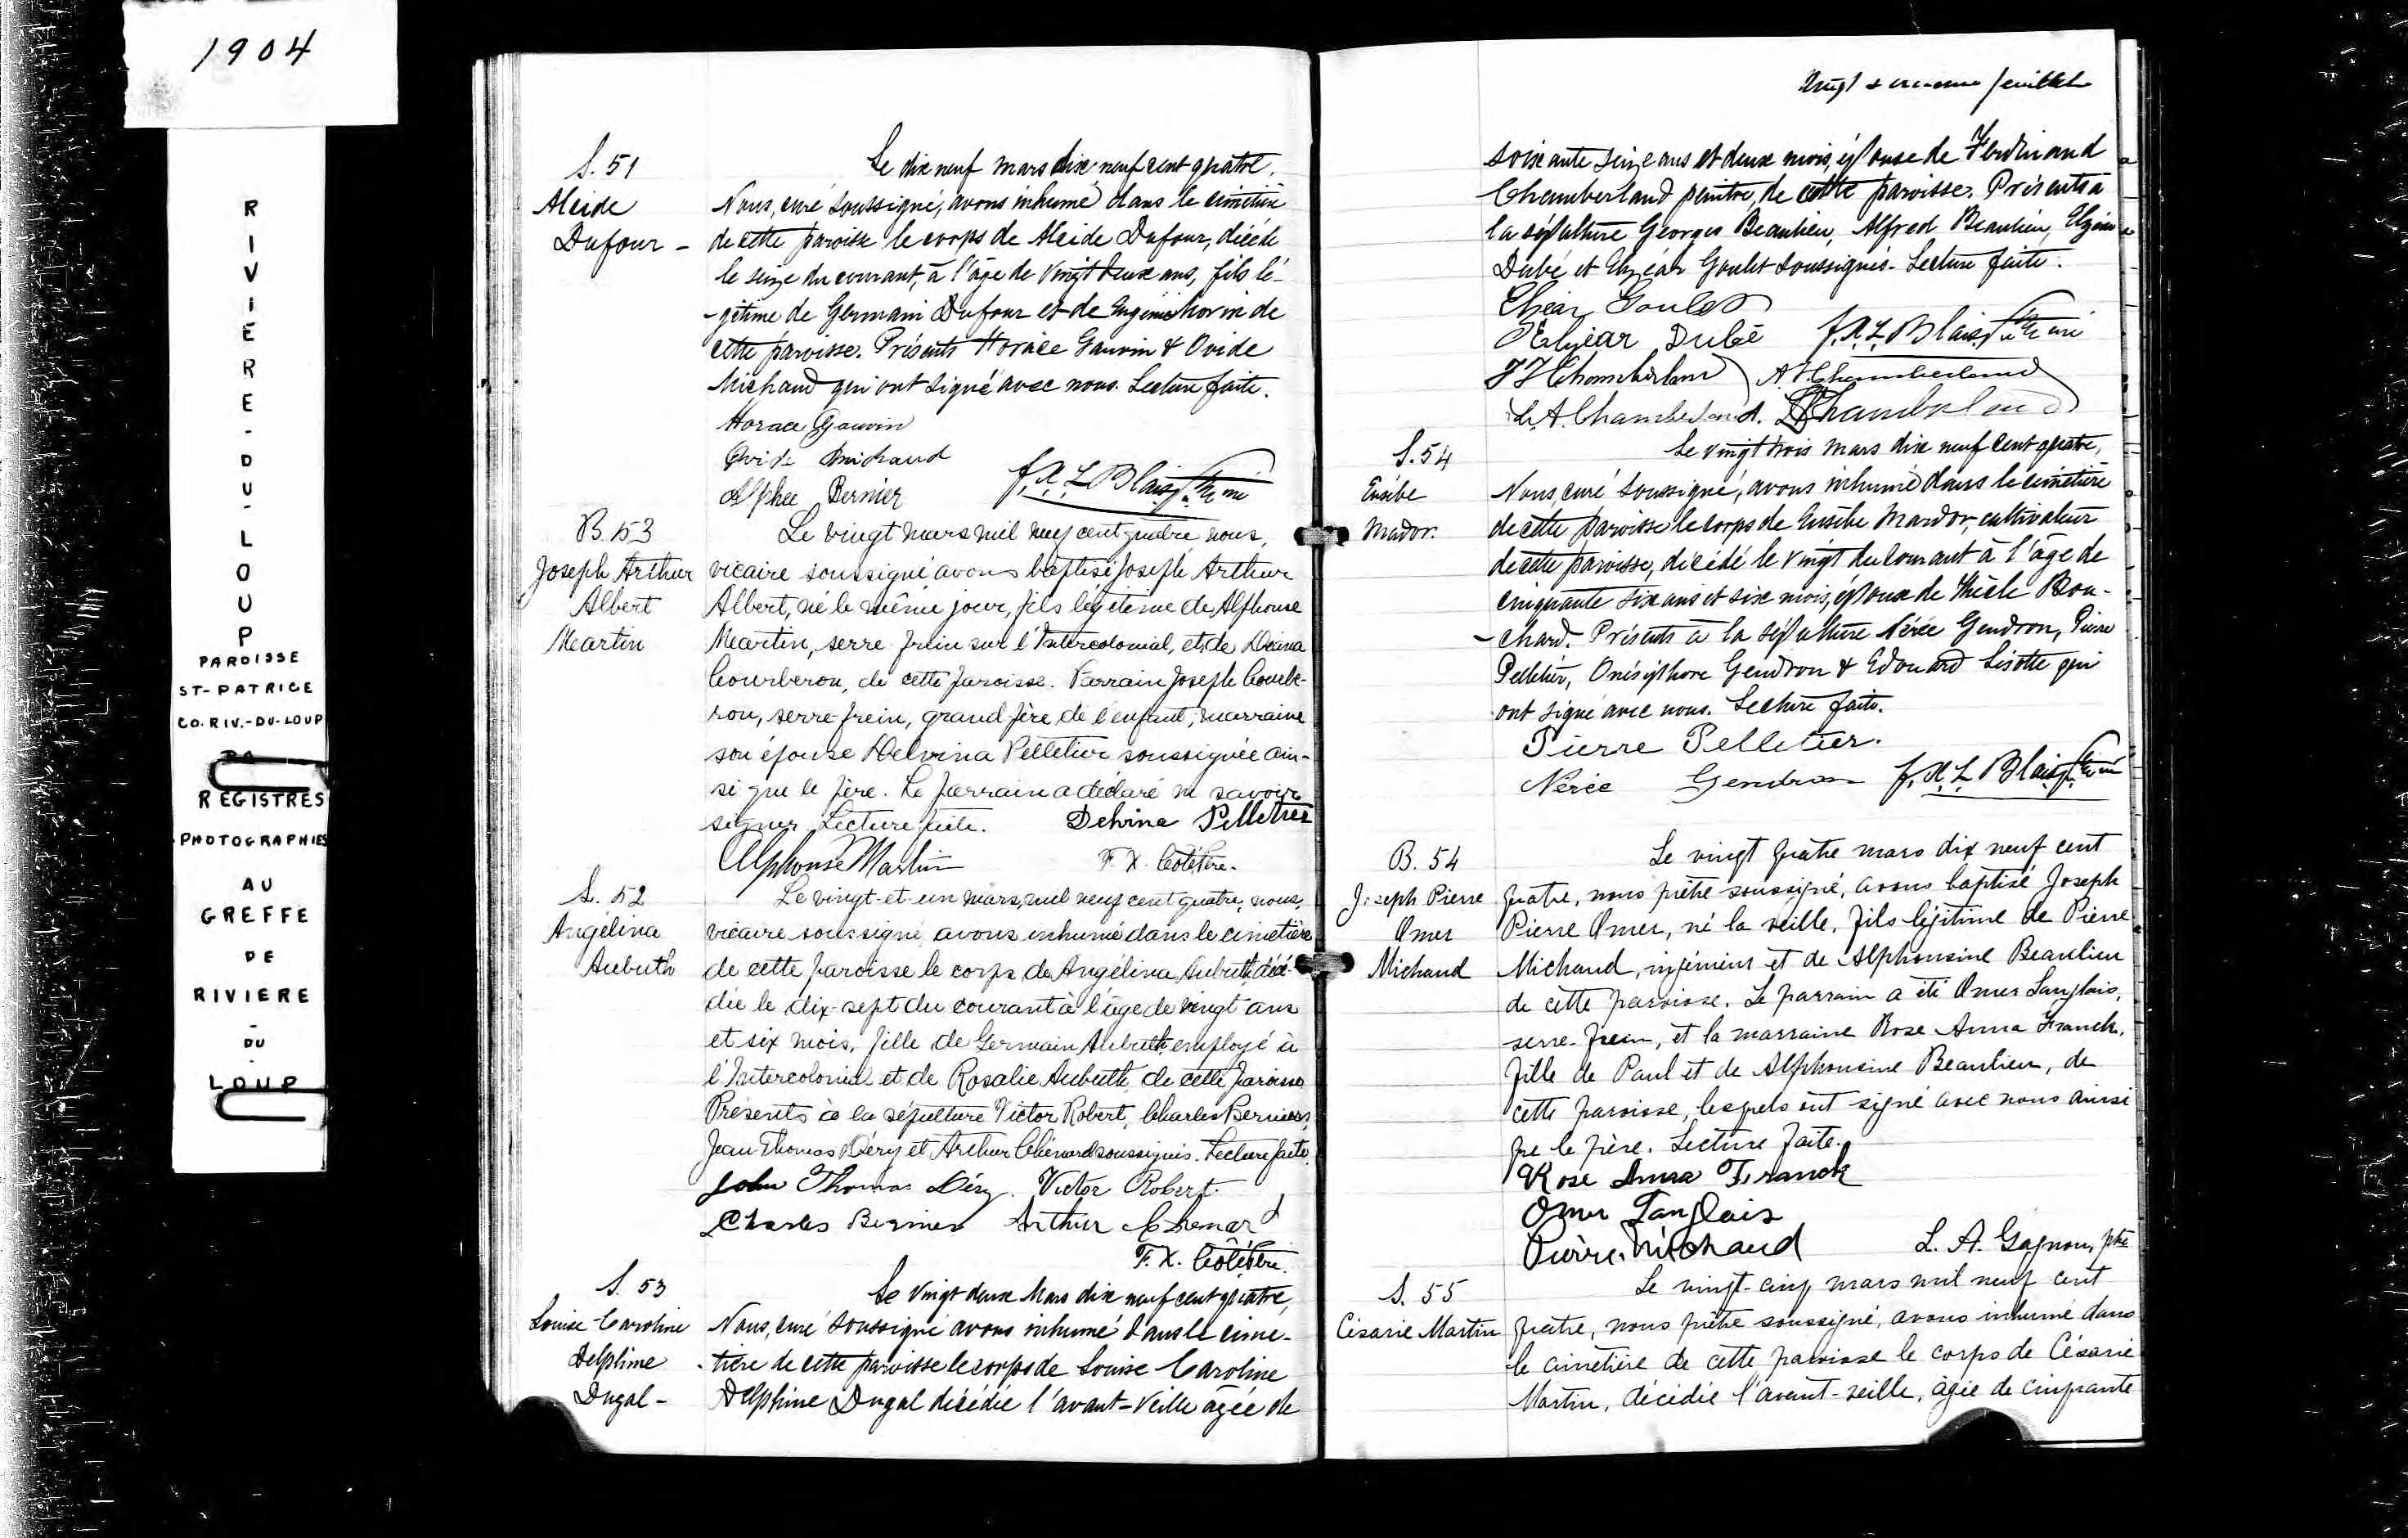 1904
RIVIERE-DU-LOUP
PAROISSE
ST-PATRICE
CO. RIV.-DU-LOUP
REGISTRES
PHOTOGRAPHIES
AU
GREFFE
DE
RIVIERE
-
DU
-
LOUP
S. 51
Alcide
Dufour -
Le dix neuf mars dix neuf cent quatre,
Nous, curé soussigné, avons inhumé dans le cimetière
de cette paroisse le corps de Alcide Dufour, décédé
le seize du courant, à l'âge de vingt deux ans, fils lé-
-gitime de Germain Dufour et de Eugénie Morin de
cette paroisse. Présents Horace Gauvin & Ovide
Michaud qui ont signé avec nous. Lecture faite.
Horace Gauvin
Ovide Michaud
Alphee Bernier
F. X. L. Blais, Ptre curé
B. 53
Joseph Arthur
Albert
Martin
Le vingt mars mil neuf cent quatre nous,
vicaire soussigné avons baptisé Joseph Arthur
Albert, né le même jour, fils légitime de Alphonse
Martin, serre-frein sur l'Intercolonial, et de Déana
Courberon, de cette paroisse. Parrain Joseph Courbe-
ron, serre-frein, grand père de l'enfant; marraine
son épouse Delvina Pelletier soussignée ain-
si que le père. Le parrain a déclaré ne savoir
signer. Lecture faite. Delvina Pelletier
Alphonse Martin F. X. Côté Ptre.
S. 52
Angélina
Aubuth
Le vingt-et-un mars, mil neuf cent quatre, nous,
vicaire soussigné avons inhumé dans le cimetière
de cette paroisse le corps de Angélina Aubuth, décé-
dée le dix-sept du courant à l'âge de vingt ans
et six mois, fille de Germain Aubuth employé à
l'Intercolonial et de Rosalie Aubuth de cette paroisse
Présents à la sépulture Victor Robert, Charles Bernier,
Jean-Thomas Déry et Arthur Chénard soussignés. Lecture faite.
John Thomas Déry. Victor Robert.
Charles Bernier Arthur Chenard
F. X. Côté Ptre.
S. 53
Louise-Caroline
Delphine
Dugal -
Le vingt deux Mars dix neuf cent quatre,
Nous, curé soussigné avons inhumé dans le cime-
-tière de cette paroisse le corps de Louise Caroline
Delphine Dugal décédée l'avant-veille âgée de
Vingt & unième feuillet
soixante seize ans et deux mois, épouse de Ferdinand
Chamberland peintre, de cette paroisse. Présents à
la sépulture Georges Beaulieu, Alfred Beaulieu, Elzéar
Dubé et Elzéar Goulet soussignés. Lecture faite.
Elzéar Goulet
Elzéar Dubé F. X. L. Blais, Ptre curé
A. Chamberland
L. A. Chamberland. Chamberland
S. 54
Eusèbe
Mador.
Le vingt trois mars dix neuf cent quatre,
Nous, curé soussigné, avons inhumé dans le cimetière
de cette paroisse le corps de Eusèbe Mardor, cultivateur
de cette paroisse, décédé le vingt du courant à l'âge de
cinquante six ans et six mois, époux de Thècle Bou-
-chard. Présents à la sépulture Nérée Gendron, Pierre
Pelletier, Onésiphore Gendron & Edouard Lizotte qui
ont signé avec nous. Lecture faite.
Pierre Pelletier.
Nérée Gendron F. X. L. Blais, Ptre curé
B. 54
Joseph Pierre
Omer
Michaud
Le vingt quatre mars dix neuf cent
quatre, nous prêtre soussigné, avons baptisé Joseph
Pierre Omer, né la veille, fils légitime de Pierre
Michaud, ingénieur et de Alphonsine Beaulieu
de cette paroisse. Le parrain a été Omer Langlais,
serre-frein, et la marraine Rose Anna Franck,
fille de Paul et de Alphonsine Beaulieu, de
cette paroisse, lesquels ont signé avec nous ainsi
que le père. Lecture faite.
Rose Anna Franck
Omer Langlais
Pierre Michaud L. A. Gagnon, ptre
S. 55
Césarie Martin
Le vingt-cinq mars mil neuf cent
quatre, nous prêtre soussigné, avons inhumé dans
le cimetière de cette paroisse le corps de Césarie
Martin, décédée l'avant-veille, âgée de cinquante